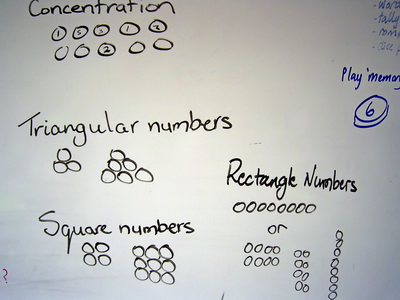 Concentration
1 5 3 1 2
2
Triangular numbers
Square numbers
Rectangle Numbers
or
- tally
Play 'memory
6
?